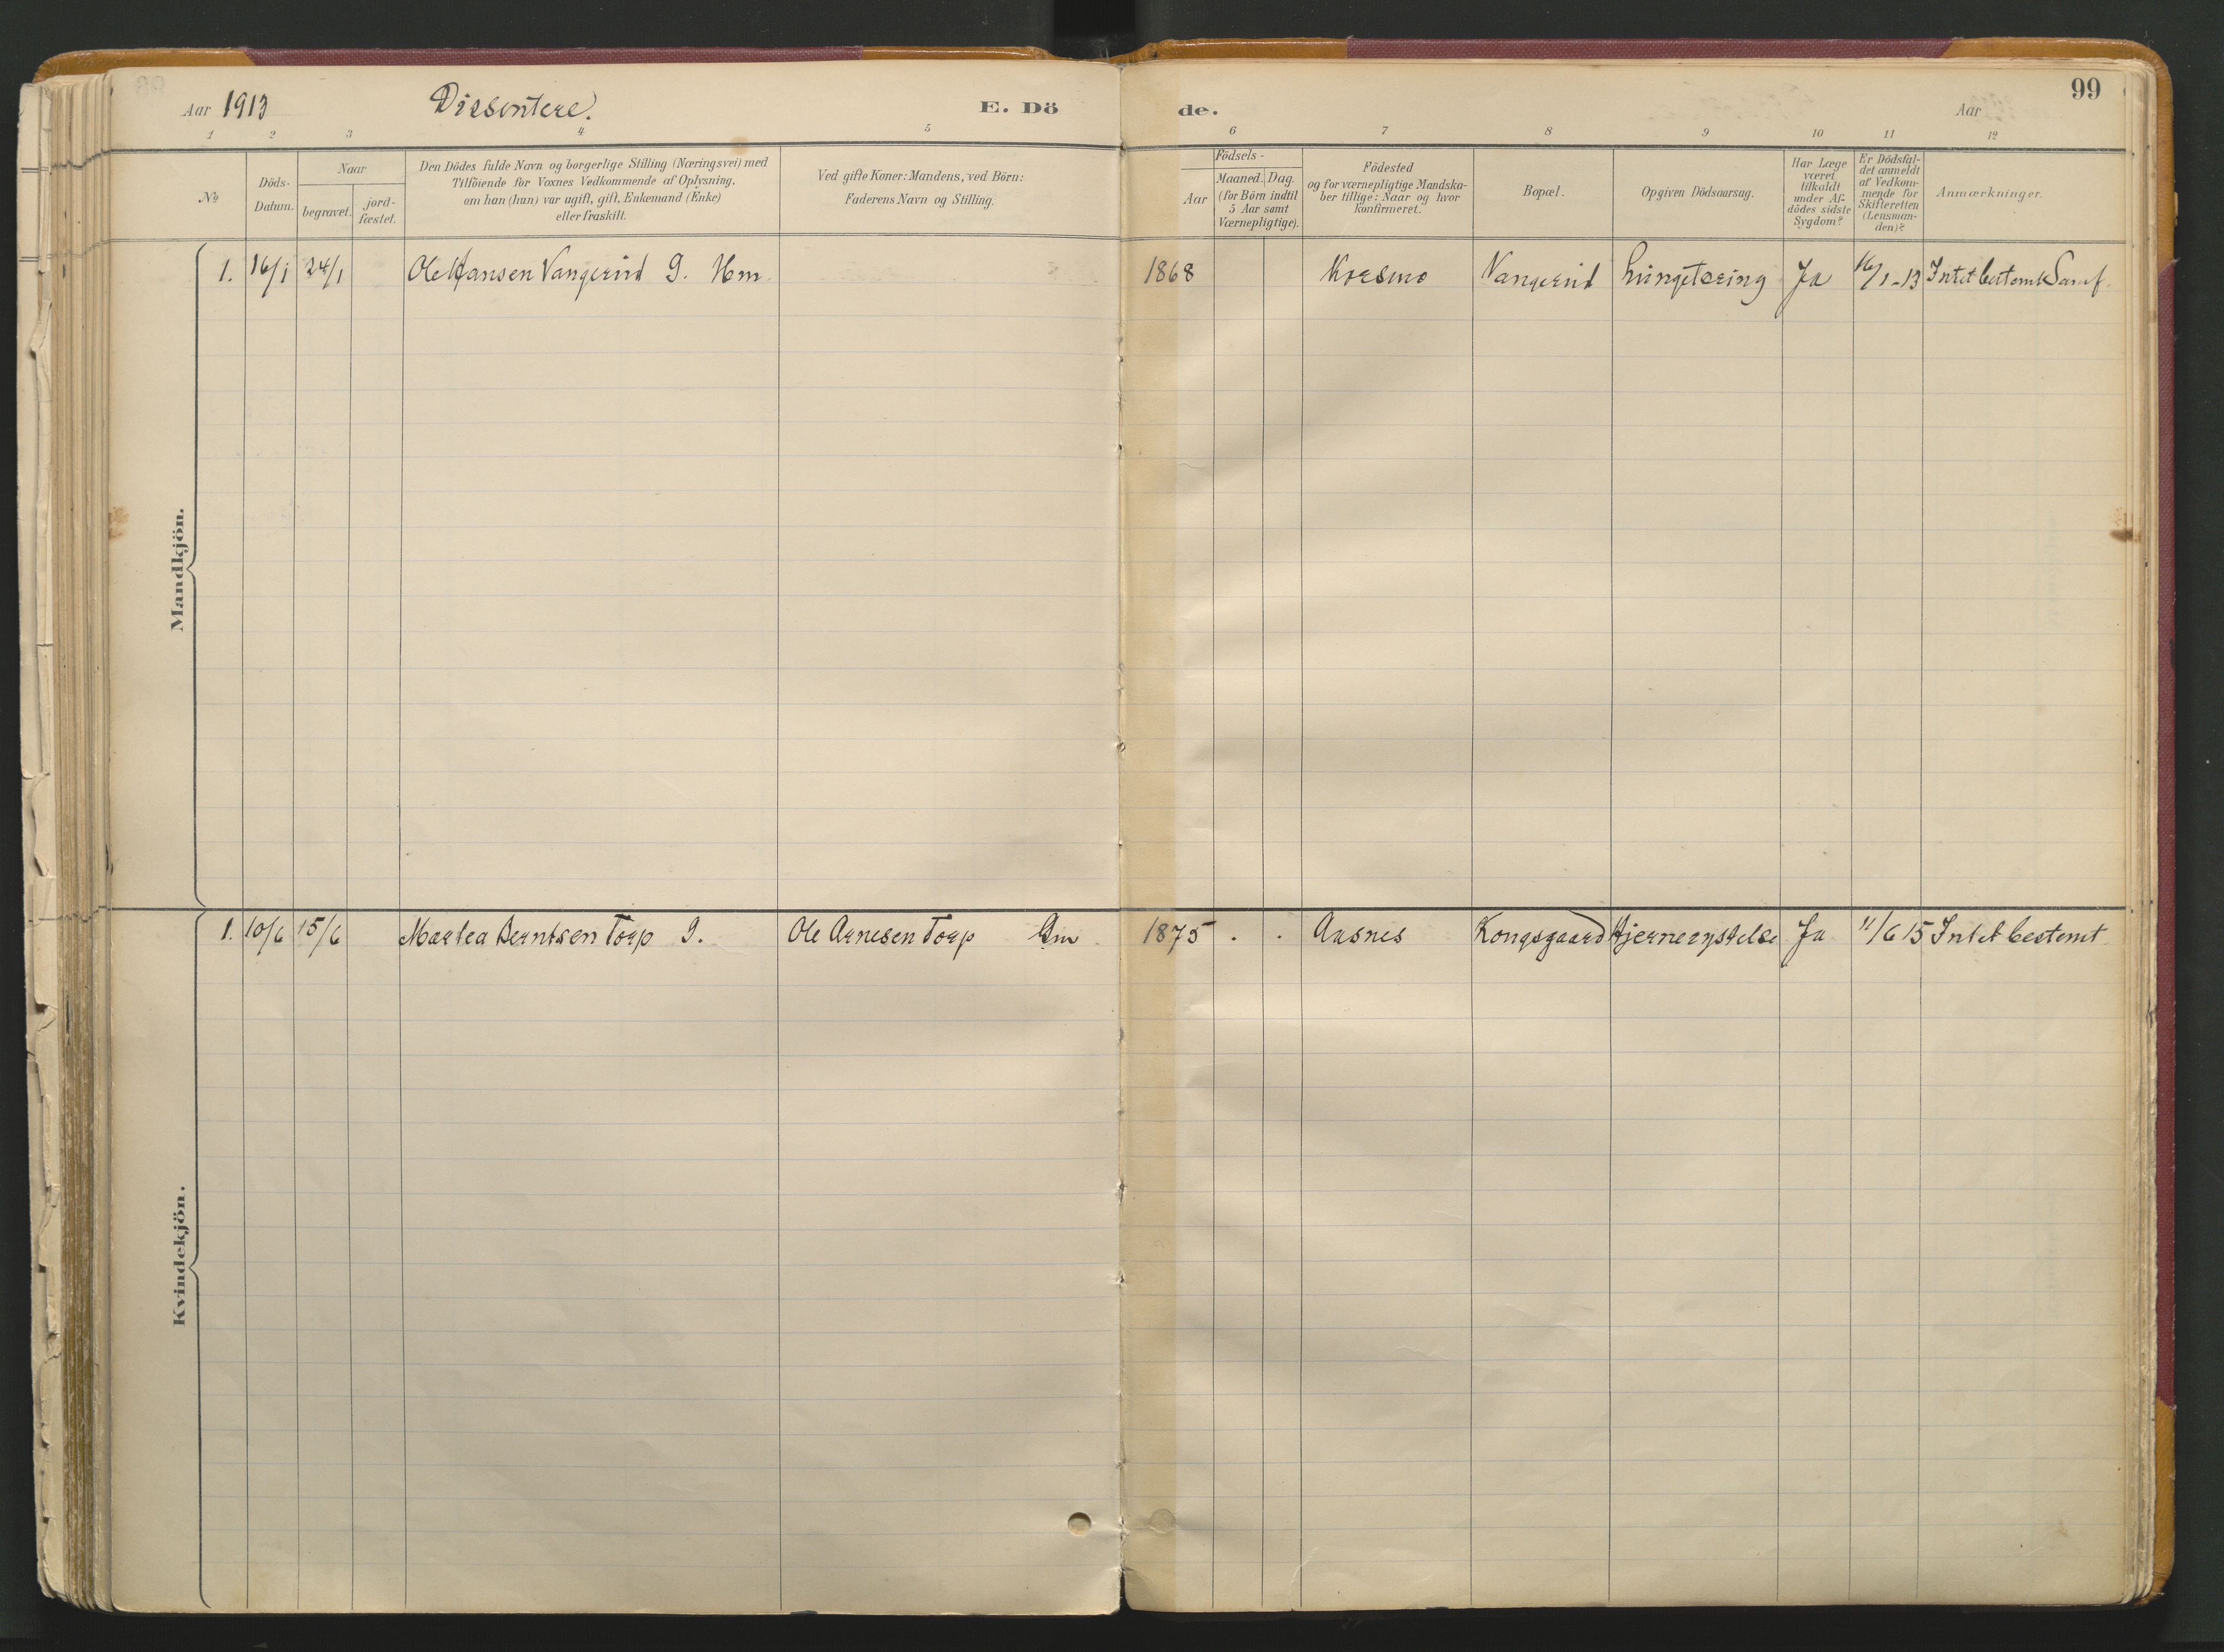 99
Aar 1913 Dissentere. E. Dö de. Aar
1 2 3 4 5 6 7 8 9 10 11 12
№
Döds-
Datum.
Naar
begravet.
jord-
fæstet.
Den Dödes fulde Navn og borgerlige Stilling (Næringsvei) med
Tilföiende for Voxnes Vedkommende af Oplysning,
om han (hun) var ugift, gift, Enkemand (Enke)
eller fraskilt.
Ved gifte Koner: Mandens, ved Börn:
Faderens Navn og Stilling.
Födsels-
Aar
Maaned. Dag.
(for Börn indtil
5 Aar samt
Værnepligtige).
Födested
og for værnepligtige Mandska-
ber tillige: Naar og hvor
konfirmeret.
Bopæl.
Opgiven Dödsaarsag.
Har Læge
været
tilkaldt
under Af-
dödes sidste
Sygdom?
Er Dödsfal-
det anmeldt
af Vedkom-
mende for
Skifteretten
(Lensman-
den)?
Anmærkninger.
Mandkjön.
1. 16/1 24/1 Ole Hansen Vangerud G. Hm 1868 Korsmo Vangerud Lungetæring Ja 16/1-13 Intet bestemt Samf.
Kvindekjön.
1. 10/6 15/6 Martea Berntsen Torp G. Ole Arnesen Torp Gm 1875 . . Aasnes Kongsgaard Hjernerystelse Ja 11/6 15 Intet bestemt